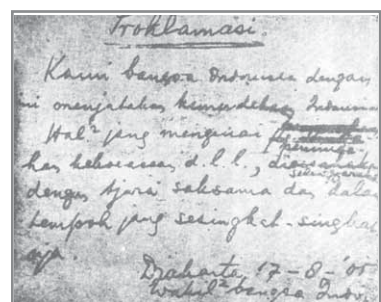 Proklamasi.
Kami bangsa Indonesia dengan
ini menjatakan kemerdekaan Indonesia
Hal² jang mengenai
peminda-
han kekoeasaan d.l.l., diselenggarakan
dengan tjara saksama dan dalam
tempoh jang sesingkat-singkat
nja.
Djakarta, 17-8-'05
Wakil² bangsa Indo.